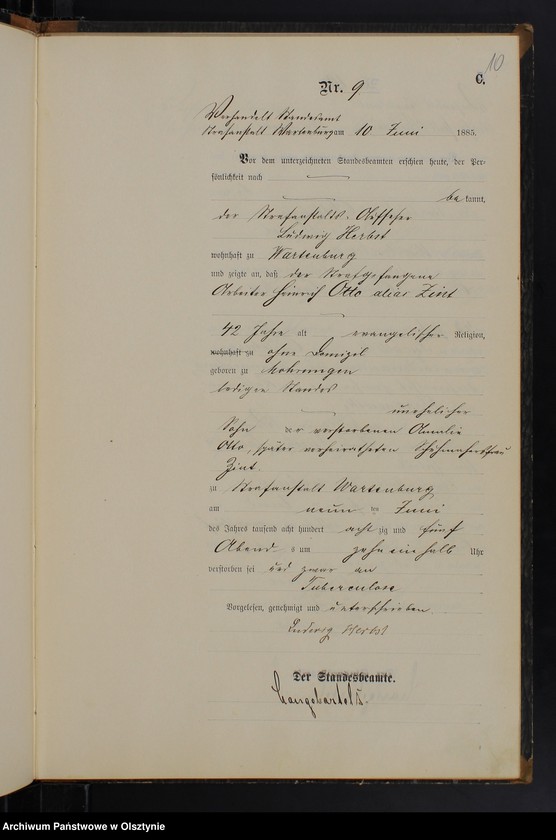 10
C.
Nr. 9
Verhandelt Standesamt
Strafanstalt Wartenburg am 10 Juni 1885.
Vor dem unterzeichneten Standesbeamten erschien heute, der Per-
sönlichkeit nach
be kannt,
der Strafanstalts-Aufseher
Ludwig Herbst
wohnhaft zu Wartenburg
und zeigte an, daß der Strafgefangene
Arbeiter Heinrich Otto alias Zint
42 Jahre alt evangelischer Religion,
wohnhaft zu ohne Domizil
geboren zu Mohrungen
ledigen Standes
unehelicher
Sohn der verstorbenen Amalie
Otto, später verheiratheten
Zint
zu Strafanstalt Wartenburg
am neun ten Juni
des Jahres tausend acht hundert acht zig und fünf
Abends um zehn ein halb Uhr
verstorben sei und zwar an
Tuberculose
Vorgelesen, genehmigt und unterschrieben
Ludwig Herbst
Der Standesbeamte.
Archiwum Państwowe w Olsztynie